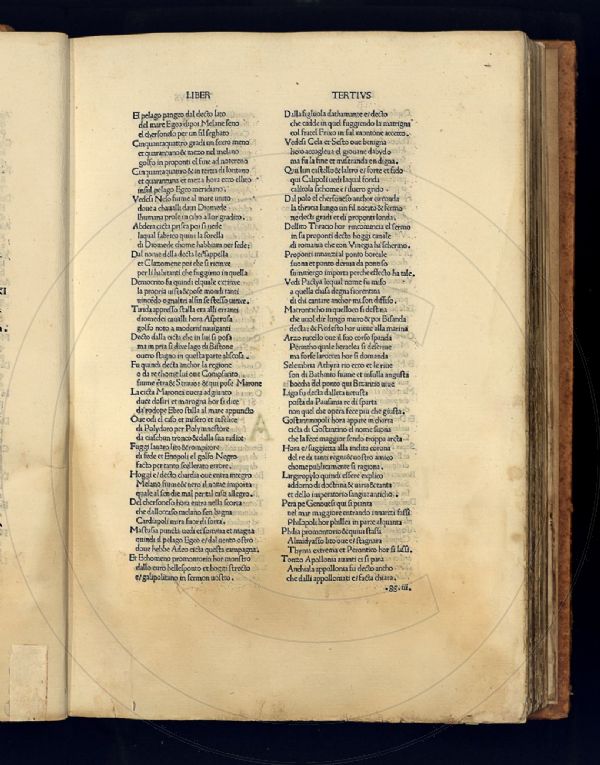 LIBER
El pelago pangeo dal decto lato
del mare Egeo dipoi Melane seno
el chersoneso per un fil seghato
Cinquantaquattro gradi un sexto meno
et quarantuno & mezo nel melano
golfo in proponti el fine ad noto
Cinquantaquatro & in terza di lontano
et quarantuna et meza hora ecco ellito
insul pelago Egeo meridiano
Vedesi Neso fiume al mare unito
doue a chaualli dava Diomede
lhumana prole in cibo a lor gradito.
Abdera cicta prisca poi si uede
laqual fabrico quiui la sorella
di Diomede chome habbian per fede.
Dal nome della decta le sappella
et Clazomene poi che si riceue
per li habitanti che fuggirno in quella
Democrito fu quindi elquale extime
la propria uista & pose mondi tanti
uincedo ognaltri al fin se stesso
Tirida appresso stalla era alli erranti
diomedei caualli hora Asperosa
golfo noto a moderni nauiganti
Decto dalla cicta che in lui si posa
ma in pria si dixe lago di Bistone
ouero stagno in questa parte abscosa.
Fu quindi decta anchor la regione
o da re chome lui oue Compsanto
fiume entra & Strauo & qui pose Marone
La cicta Maronea euera ad giunto
duce dosiri et marogna hor si dice
da rodope Ebro stilla al mare appuncto
Ode oui el caso et misero et infelice
di Polydoro per Polymnestore
da ciaschun tronco & dalla sua radice
Fuggi lauaro lito & rompitore
di fede et Enopoli el golfo Negro
facto per tanto scellerato errore.
Hoggi e/ decto chardia oue entra integro
Melano fiume & nero al nome importa
quale al sen die mal per tal caso allegro.
Del chersoneso hora entra nella scorta
che dalloccaso melano sen bagna
Cardiapoli intra fuor di sorta.
Mastusia puncta uedi excorsiua et magna
quindi il pelago Egeo e/ dal uento ostro
doue hebbe Adeo cicta questa campagna.
Et Echomeno promontorio hor monstro
dallo euro hellesponto et hoggi strecto
e/ galipolitano in sermon uostro.
TERTIVS
Dalla figluola dathamante e/ decto
che cadde in quel fuggendo la matrigna
col fratel Frixo in sul montone accecto.
Vedesi Cela et Sesto oue benigna
hero accoglieua el giouane dabydo
ma fu la fine et miseranda en digna.
Qui sun castello & laltro e/ forte et fido
qui Calipoli uedi laqual fonda
callitola sichome e/ il uero grido
Dal polo el chersoneso anchor circunda
la thracia lungo un fil nocuto & fermo
ne decti gradi et di proponti fonda.
Dellito Thracio hor rincomincia el sermo
in su proponti decto hoggi canale
di romania che con Vinegia ha schermo.
Proponti innanzi al ponto boreale
suona et ponto deriua da pontiso
summergo importa perche effecto ha tale.
Vedi Pactya lequal nome fu miso
a quella chiusa degna fiorentina
di chi cantare anchor mi son diffiso.
Marronticho in quel loco si destina
che uuol dir lungo muro & poi Bisanda
decta e/ & Rodesto hor uiene alla marina
Arzo rutello oue il suo corso spanda
Perintho quale heraclea si descriue
ma forse larocien hor si domanda
Selembria Athyra rio ecco et le riue
son di Bathinio fiume et insulla angusta
boccha del ponto qui Bizantio uiue
Liga fu decta dalla uetusta
posta da Pausania re di sparta
non qual che opera fece piu che giusta.
Gostantinopoli hora appare in charta
cicta di Gostantino el nome suona
che la fece maggior sendo troppa arcta
Hora e/ suggiecta alla inclita corona
del re di tanti regni & uostro amico
chome publichamente si ragiona.
Largiropylo quindi essere explico
addorno di doctrina & uirtu & tanta
et dello imperatorio sangue anticho.
Pera pe Genouesi qui si pianta
nel mar maggiore entrando innanzi fassi
Philapoli hor phillea in parte alquanta
Philia promontorio & quiui stassi
Almidyasso lito oue e/ stagnara
Thynia extrema et Perontico hor si lassi.
Tonzo Apollonia auanti ci si para
Anchiala appollonia fu decto ancho
che dalli appolloniati e/ facta chiara.
.gg.iii.